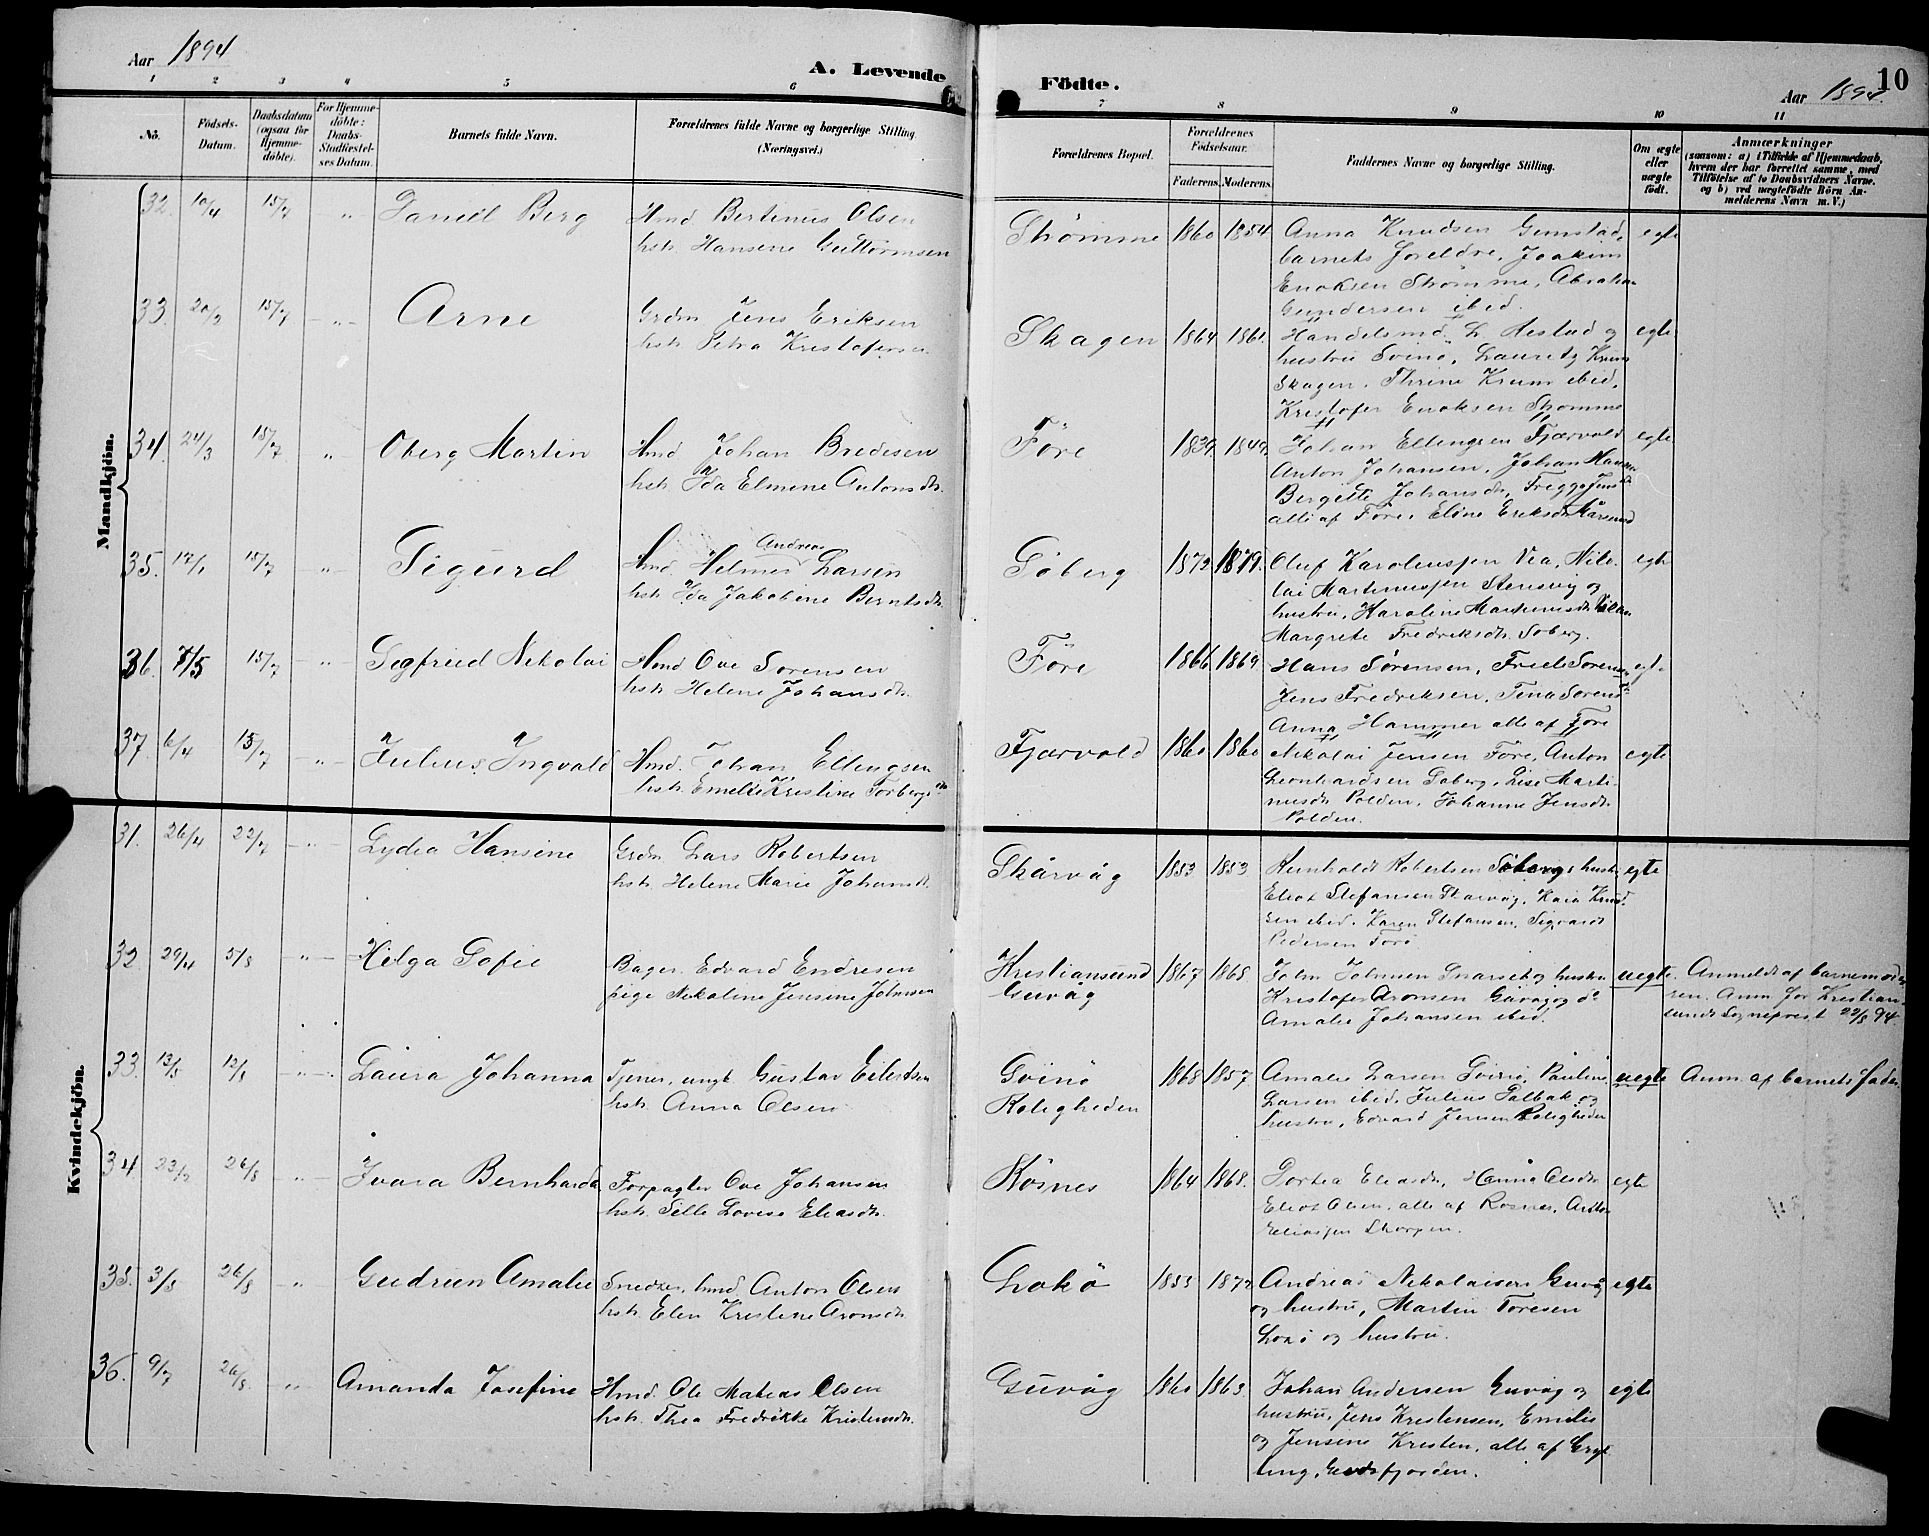 Aar 1894
A. Levende
Födte.
Aar 1894.
10
1 2 3 4 5 6
7 8 9 10 11
No.
Födsels-
Datum.
Daabsdatum
(ogsaa for
Hjemme-
döbte).
For Hjemme-
döbte:
Daabs-
Stadfæstel-
ses Datum.
Barnets fulde Navn.
Forældrenes fulde Navne og borgerlige Stilling.
(Næringsvei.)
Forældrenes Bopæl.
Forældrenes
Födselsaar.
Faderens.
Moderens.
Faddernes Navne og borgerlige Stilling.
Om ægte
eller
uægte
födt.
Anmærkninger
(saasom: a) i Tilfælde af Hjemmedaab,
hvem der har forrettet samme, med
Tilföielse af to Daabsvidners Navne.
og b) ved uægtefödte Börn An-
melderens Navn m. V.)
Mandkjön.
32. 10/4 15/7 " Daniel Berg
Hmd Bertinus Olsen
hstr. Hansine Guttormsen
Strømme 1860 1854
Anna Knudsen Gimstad,
barnets foreldre, Joakim
Enoksen Strømme, Abraham
Gundersen ibid.
egte
33. 20/3 15/7 " Arne
Grdm Jens Eriksen
hstr. Petra Kristofersen
Skagen 1864 1861.
Handelsmd. L. Restad og
hustru Svinø, Lauritz Krum
Skagen. Thrine Krum ibid,
Kristofer Enoksen Strømme
egte
34. 24/3 15/7 " Oberg Martin
Hmd Johan Bredesen
hstr. Ida Elmine Antonsdtr.
Före 1839. 1849.
Johan Ellingsen Fjærvold
Anton Johansen, Johan Hansen
Bergitte Johansdtr,
alle af Före. Eline Eriksdtr
egte
35. 17/1 15/7 " Sigurd
Andreas
Hmd Helmer Larsen
hstr. Ida Jakobine Berntsdtr.
Søberg 1872 1879.
Oluf Karoliussen Vea, Niko-
lai Martinussen Steinsvig og
hustru, Karoline Martinusdtr
Margrete Fredriksdtr. Soberg.
egte
36. 7/5 15/7 " Sigfried Nikolai
Hmd Ove Sørensen
hstr. Helene Johansdtr.
Före 1866 1869.
Hans Sørensen, Fried. Sorensen
Jens Fredriksen, Tina Sorensdtr
Anna Hammer alle af Före
egt.
37. 6/4 15/7 " Julius Ingvald
Hmd. Johan Ellingsen
hstr. Emelie Kristine Torbergsdtr
Fjærvold 1860 1860
Nikolai Jensen Före, Anton
Leonhardsen Soberg, Lise Marti-
nusdtr Polden, Johanne Jensdtr
Polden.
egte
Kvindekjön.
31. 26/4 22/7 " Lydia Hansine
Grdm Lars Robertsen
hstr. Helene Marie Johansdtr.
Skårvåg 1853 1853
Reinholdt Robertsen Söberg & hustru
Eliot Stefansen Skarvåg, Kaia Knud-
sen ibid. Karen Stefansen, Sigvardt
Pedersen Forö
egte
32. 29/4 5/8 " Helga Sofie
Bager. Edvard Endresen
pige Nikoline Jensine Johnsen
Kristiansund
Guvåg
1867 1868.
John Johnsen Snarset og hustru
Kristofer Aronsen Guvåg og do
Amalie Johansen ibid.
uegte. Anmeldt af barnemode-
ren. Anm for Kristian-
sunds Sogneprest 22/8 94.
33. 13/5 12/8 " Laura Johanna
Tjener, ungk Gustav Eilertsen
hstr. Anna Olsen
Svinö
Roligheden
1868 1857
Amalie Larsen Svinö, Pauline
Larsen ibid, Julius Salbak og
hustru, Edvard Jensen Roligheden
uegte Anm. af barnets fader
34. 23/2 26/8 " Ivara Bernharda
Forpagter Ove Johansen
hstr. Sille Lovise Eliasdtr.
Rösnes 1864 1868.
Dortea Eliasdtr, Hanna Olsdtr
Eliot Olsen, alle af Rosnes, Anton
Eliassen Skorpen.
egte
35. 3/5 26/8 " Gudrun Amalie
Snedker, hmd Anton Olsen
hstr. Elen Kristine Aronsdtr
Lokö 1853 1872
Andreas Nikolaisen Guvåg
og hustru, Martin Toresen
Lokö og hustru.
egte
36. 9/7 26/8. " Amanda Josefine
Hmd. Ole Matias Olsen
hstr. Thea Fredrikke Kristensdtr.
Guvåg 1861 1863.
Johan Andersen Guvåg og
hustru, Jens Kristensen, Emilie
og Jensine Kristen, alle af Gryt-
ting, Gudsfjorden.
egte